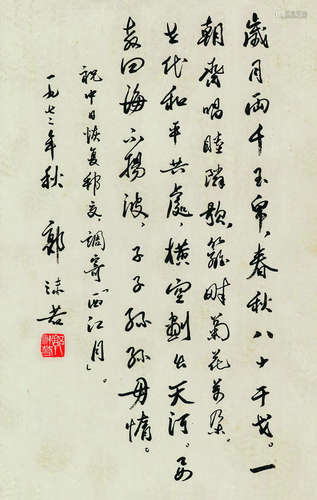 歲月兩千玉帛,春秋八十干戈。一
朝齊唱睦隣歌,籬畔菊花萬朵。
世代和平共處,橫空劃出天河。要
教四海不揚波,子子孫孫毋惰。
祝中日恢复邦交,調寄「西江月」。
一九七二年秋 郭沫若